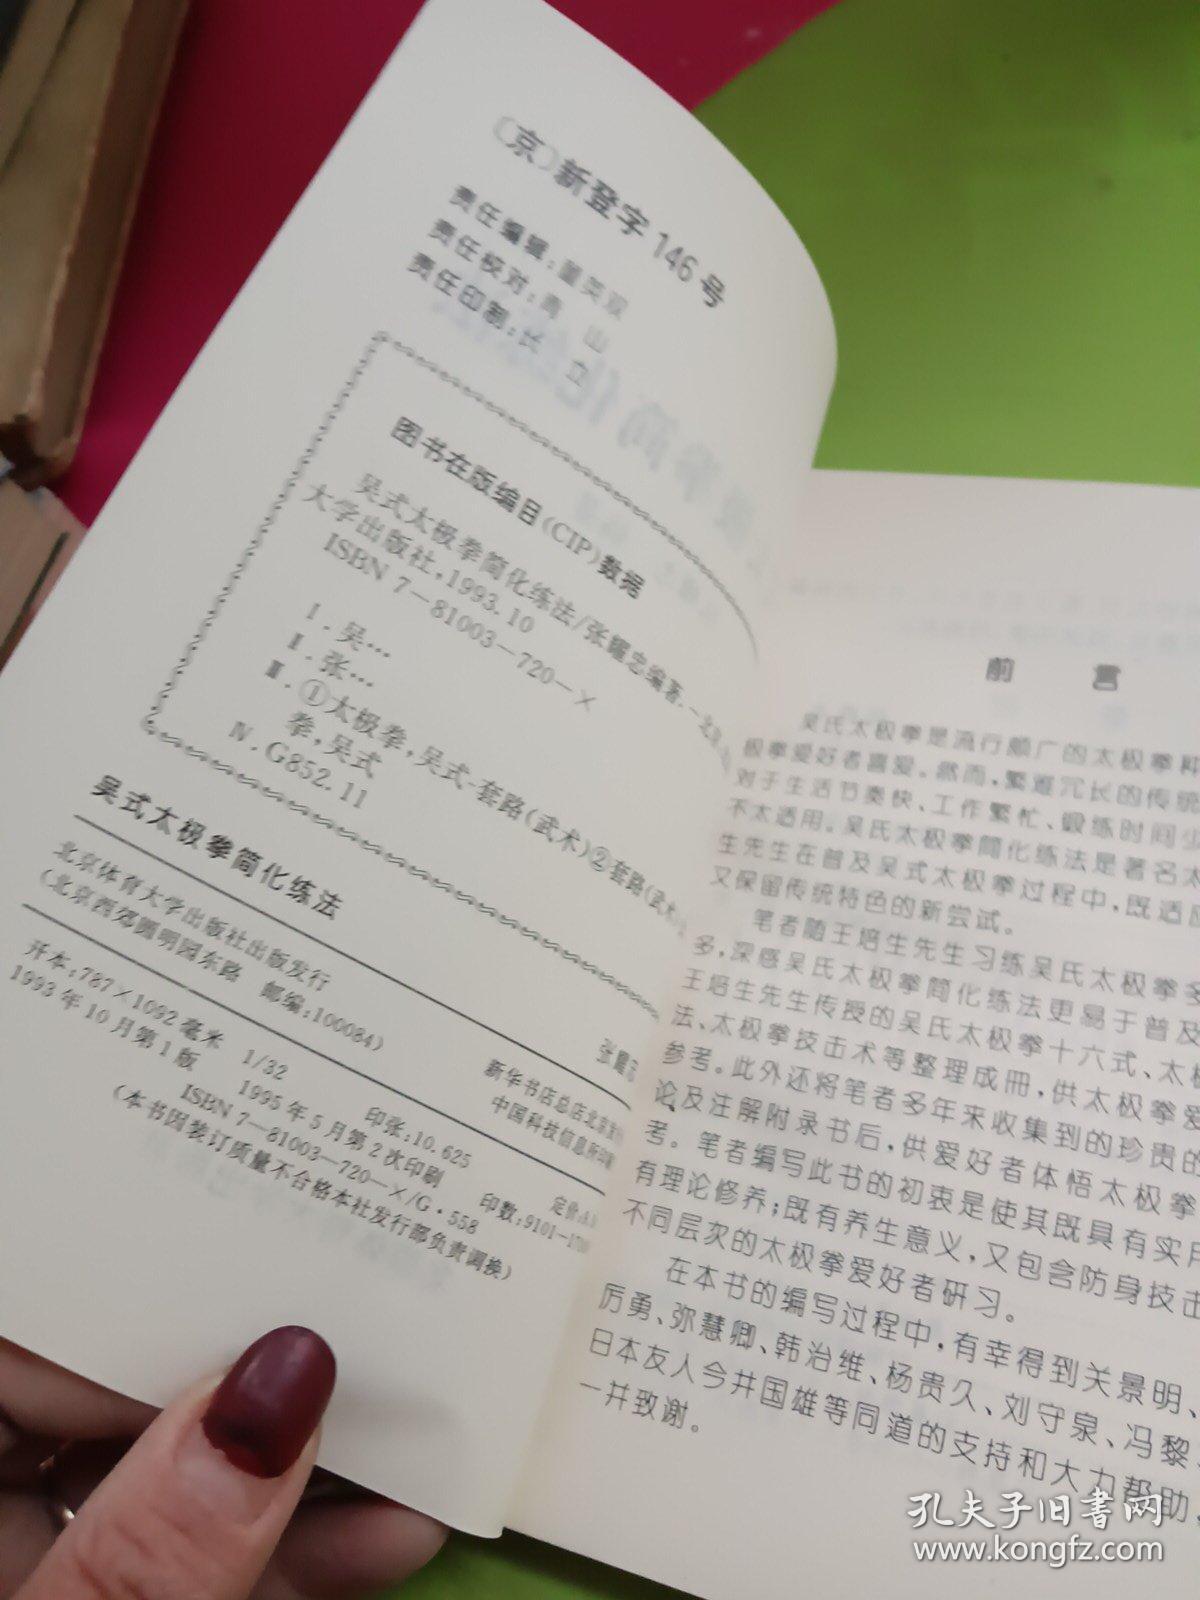 （京）新登字146号
责任编辑：董英双
责任校对：青 山
责任印制：长 立
图书在版编目（CIP）数据
吴式太极拳简化练法/张耀忠编著.－北京
大学出版社，1993.10
ISBN 7－81003－720－×
Ⅰ.吴…
Ⅱ.张…
Ⅲ.①太极拳，吴式-套路（武术）②套路（武术）
拳，吴式
Ⅳ.G852.11
吴式太极拳简化练法
张耀忠
北京体育大学出版社出版发行
（北京西郊圆明园东路 邮编：100084）
新华书店总店北京发行
中国科技信息所印刷
开本：787×1092毫米 1/32 印张：10.625 定价：
1993年10月第1版 1995年5月第2次印刷 印数：9101—
ISBN 7—81003—720—×/G·558
（本书因装订质量不合格本社发行部负责调换）
前 言
吴氏太极拳是流行颇广的太极拳种
极拳爱好者喜爱。然而，繁难冗长的传统
对于生活节奏快、工作繁忙、锻练时间少
不太适用。吴氏太极拳简化练法是著名太
生先生在普及吴式太极拳过程中，既适应
又保留传统特色的新尝试。
笔者随王培生先生习练吴氏太极拳多
多，深感吴氏太极拳简化练法更易于普及
王培生先生传授的吴氏太极拳十六式、太极
法、太极拳技击术等整理成册，供太极拳爱
参考。此外还将笔者多年来收集到的珍贵的
论及注解附录书后，供爱好者体悟太极拳
考。笔者编写此书的初衷是使其既具有实用
有理论修养；既有养生意义，又包含防身技击
不同层次的太极拳爱好者研习。
在本书的编写过程中，有幸得到关景明、
厉勇、弥慧卿、韩治维、杨贵久、刘守泉、冯黎
日本友人今井国雄等同道的支持和大力帮助，
一并致谢。
孔夫子旧书网
www.kongfz.com